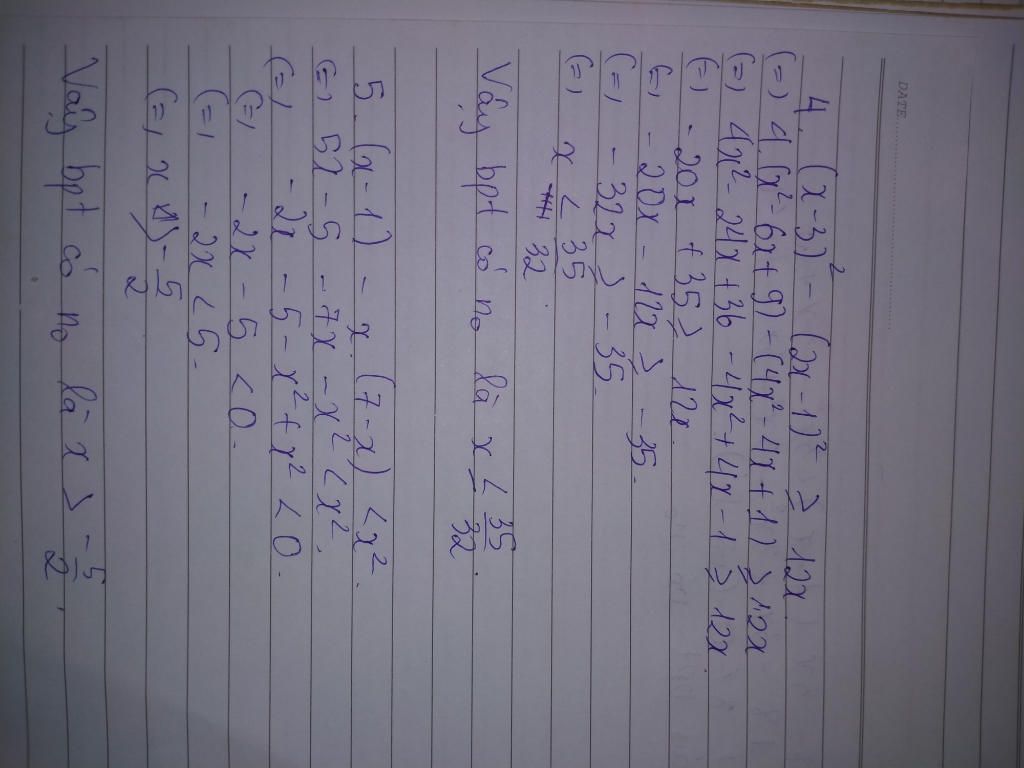 DATE
4. (x-3)² - (2x-1)² ≥ 12x
(=) 4(x²-6x+9)-(4x²-4x+1) ≥ 12x
(=) 4x²-24x+36-4x²+4x-1 ≥ 12x
(=) -20x+35 ≥ 12x.
(=) -20x-12x ≥ -35.
(=) -32x ≥ -35.
(=) x ≤ 35/32.
Vậy bpt có n₀ là x ≤ 35/32.
5. (x-1) - x(7-x) < x².
(=) 5x-5-7x-x² < x².
(=) -2x-5-x²+x² < 0.
(=) -2x-5 < 0.
(=) -2x < 5.
(=) x > -5/2
Vậy bpt có n₀ là x > -5/2.